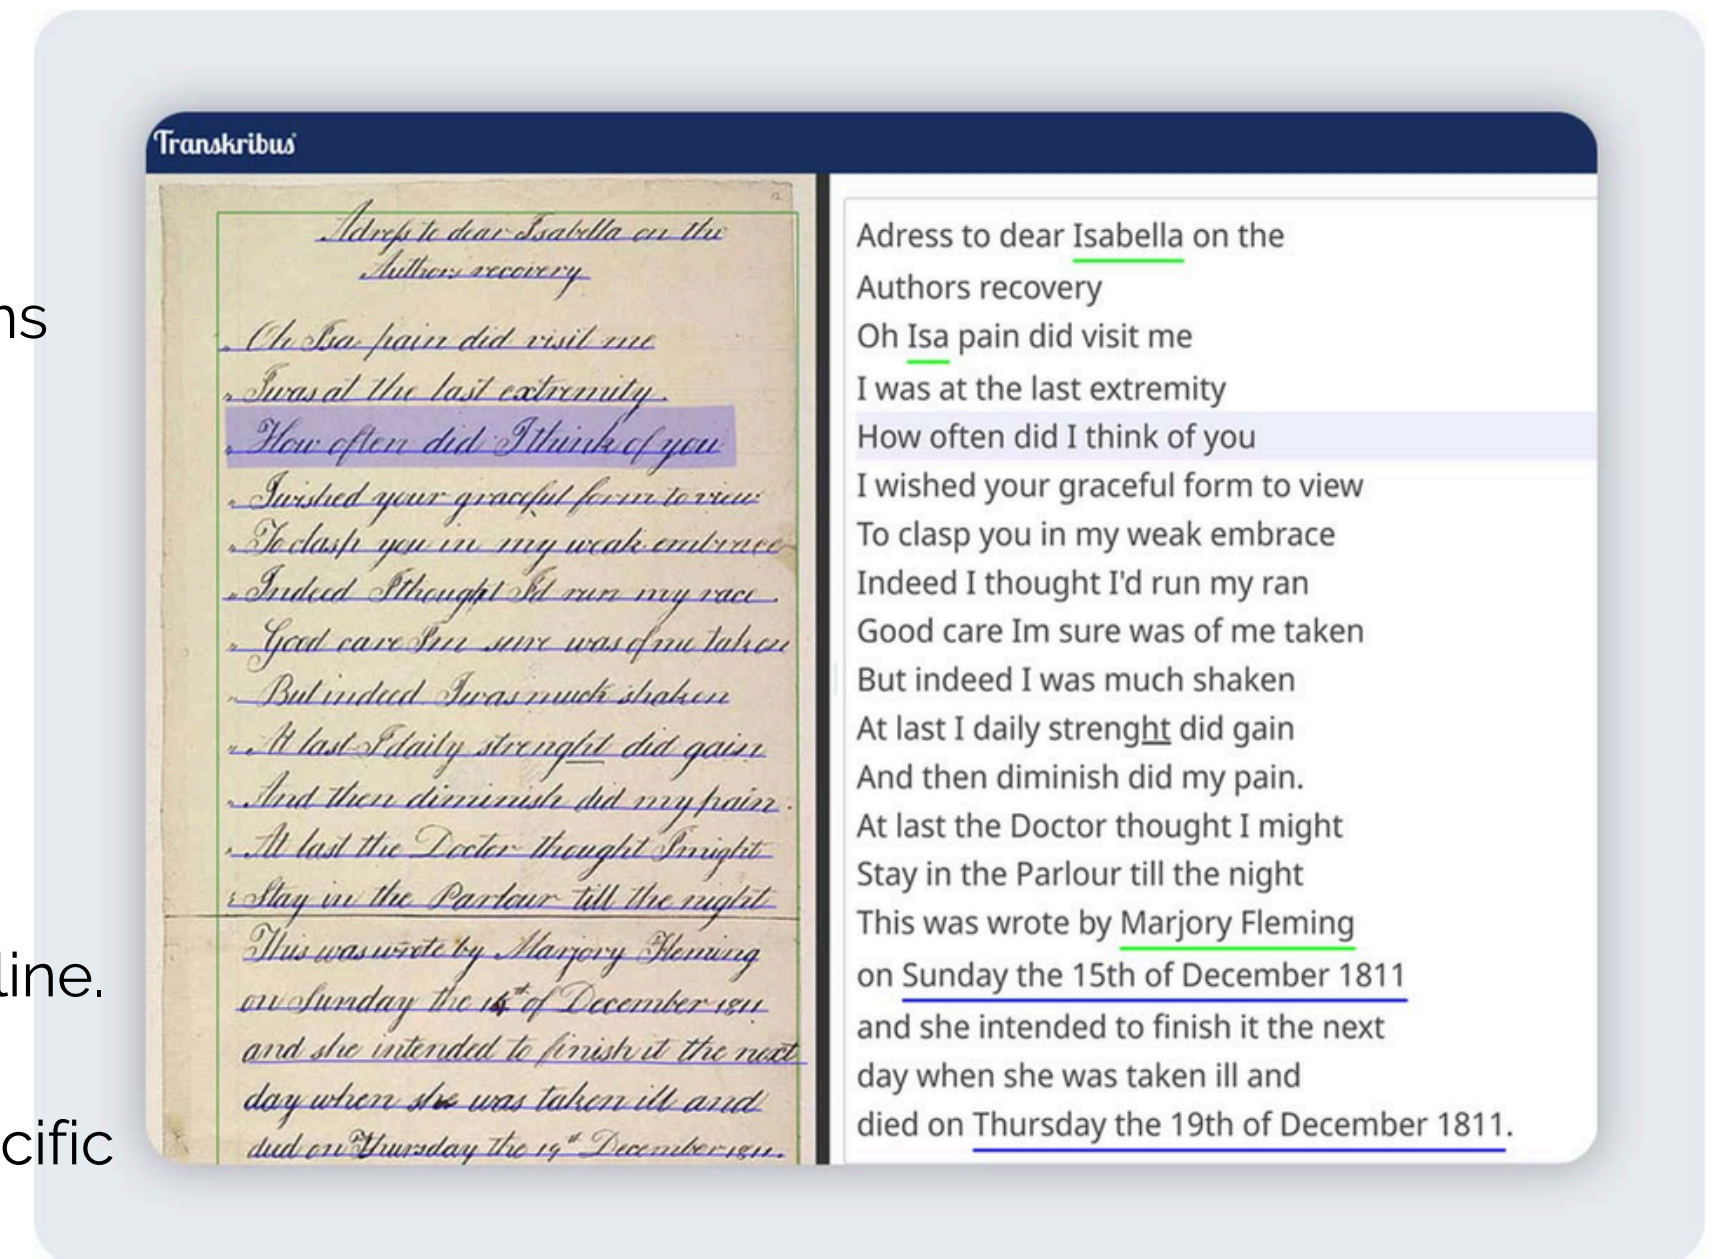 ns
line.
cific
Transkribus
12
Adress to dear Isabella on the
Authors recovery
„ Oh Isa pain did visit me
„ I was at the last extremity.
„ How often did I think of you
„ I wished your graceful form to view
„ To clasp you in my weak embrace
„ Indeed I thought I'd run my race.
„ Good care I'm sure was of me taken
„ But indeed I was much shaken
„ At last I daily strenght did gain
„ And then diminish did my pain.
„ At last the Doctor thought I might
„ Stay in the Parlour till the night
This was wrote by Marjory Fleming
on Sunday the 15th of December 1811
and she intended to finish it the next
day when she was taken ill and
died on Thursday the 19th December 1811.
Adress to dear Isabella on the
Authors recovery
Oh Isa pain did visit me
I was at the last extremity
How often did I think of you
I wished your graceful form to view
To clasp you in my weak embrace
Indeed I thought I'd run my ran
Good care Im sure was of me taken
But indeed I was much shaken
At last I daily strenght did gain
And then diminish did my pain.
At last the Doctor thought I might
Stay in the Parlour till the night
This was wrote by Marjory Fleming
on Sunday the 15th of December 1811
and she intended to finish it the next
day when she was taken ill and
died on Thursday the 19th of December 1811.